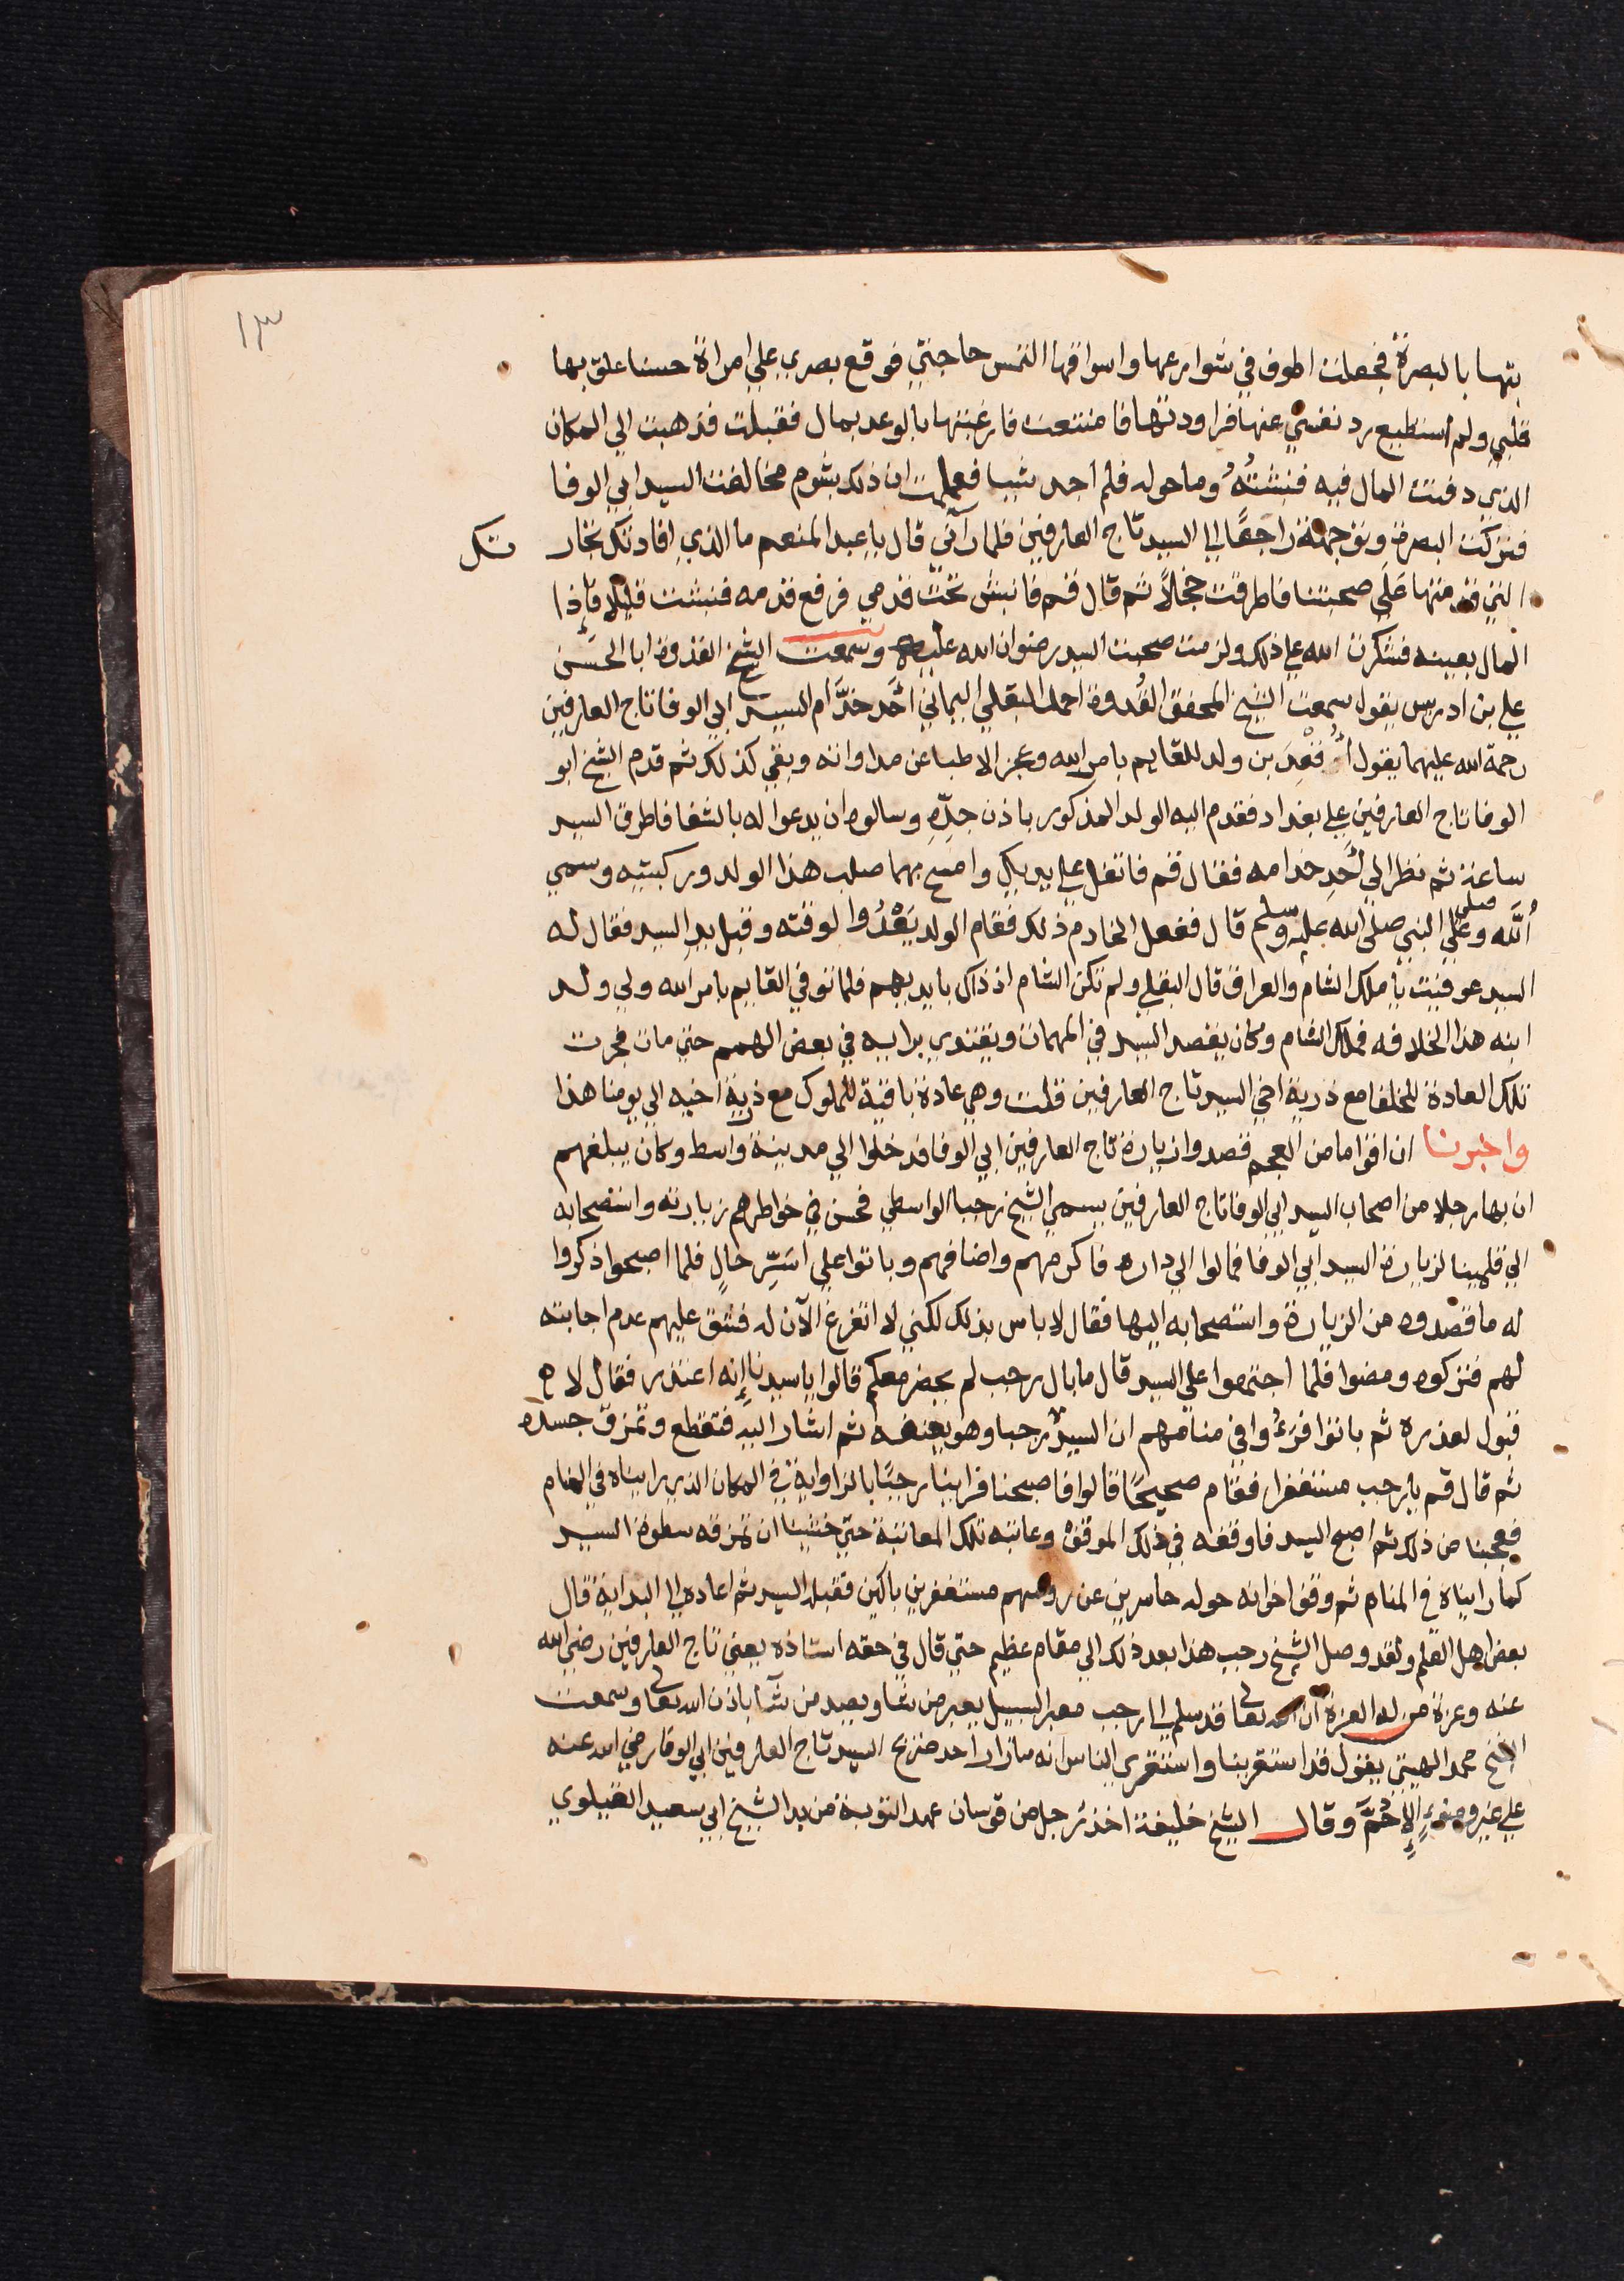 ١٣
بتها بالبصرة فجعلت اطوف في شوارعها واسواقها التمس حاجتي فوقع بصري علي امراة حسنا علق بها
قلبي ولم استطيع رد نفسي عنها فراودتها فامتنعت فارغبتها بالوعد بمال فقبلت فذهبت الي المكان
الذي دفنت المال فيه فنبشتُهُ وما حوله فلم اجد شيبا فعلمت ان ذلك بشوم مخالفت السيد ابي الوفا
فتركت البصرة وتوجهت راجعًا الي السيد تاج العارفين فلما رآني قال يا عبد المنعم ما الذي افادتك تجار تك
التي قدمتها عَلي صحبتنا فاطرقت خجلاً ثم قال قم فانبش تحت قدمي فرفع قدمه فنبشت قليلا فإذا
المال بعينه فشكرت الله علي ذلك ولزمت صحبت السيد رضوان الله عليه وسمعت الشيخ القدوة ابا الحسَن
علي بن ادريس يقول سمعت الشيخ المحقق القُدوة احمد البقلي اليماني احَد خدَّام السيد ابي الوفا تاج العارفين
رحمة الله عليهما يقول أُقْعِدَ بن ولد للقايم بامر الله وعجز الاطبا عن مداواته وبقي كذلك ثم قدم الشيخ ابو
الوفا تاج العارفين علي بغداد فقدم اليه الولد المذكور باذن جدِّهِ وسالوه ان يدعوا له بالشفا فاطرق السيد
ساعة ثم نظر الي احَدِ خدامه فقال قم فاتفل علي يديك وامسح بهما صلب هذا الولد وركبتيه وسمي
اُللَّه وصلي علي النبي صلي الله عليه وسلم قال ففعل الخادم ذلك فقام الولد يَعْدُوا لوقته وقبل يد السيد فقال له
السيد عوفيت يا ملك الشام والعراق قال البقلي ولم تكن الشام اذ ذاك بايديهم فلما توفي القايم بامر الله ولي ولد
ابنه هذا الخلافه فملك الشام وكان يقصد السيد في المهمات ويقتدي برايه في بعض الهمم حتي مات فجرت
تلك العادة للخلفا مع ذرية اخي السيد تاج العارفين قلت وهي عادة باقية للملوك مع ذرية اخيه الي يومنا هذا
واخبرنا ان اقواما من العجم قصدوا زيارة تاج العارفين ابي الوفا فدخلوا الي مدينة واسط وكان يبلغهم
ان بها رجلا من اصحاب السيد ابي الوفا تاج العارفين يسمي الشيخ رجبا الواسطي فحسن في خواطرهم زيارته واستصحابه
الي قلمينا لزيارة السيد ابي الوفا فمالوا الي داره فاكرمهم واضافهم وباتوا علي اسَرِّ حَالٍ فلما اصبحوا ذكروا
له ما قصدوه من الزيارة واستصحابه اليها فقال لا باس بذلك لكني لا اتفرغ الآن له فشق عليهم عدم اجابته
لهم فتركوه ومضوا فلما اجتمعوا علي السيد قال ما بال رجب لم يحضر معكم قالوا يا سيدنا إنه اعتذر فقال لا
قبول لعذره ثم باتوا فرءُوا في منامهم ان السيد رجبا وهو يعنفه ثم اشار اليه فتقطع وتمزق جسده
ثم قال قم يا رجب مستغفرا فقام صحيحًا قالوا فاصبحنا فراينا رجبًا بالزاوية في المكان الذي رايناه في المنام
فعجبنا من ذلك ثم اصبح السيد فاوقفه في ذلك الموقف وعاتبه تلك المعاتبة حتي خشينا ان تمزقه سطوة السيد
كما رايناه في المنام ثم وقف اخوانه حوله حاسرين عن روسهم مستغفرين باكين فقبله السيد ثم اعاده الي البداية قال
بعض اهل العلم ولقد وصل الشيخ رجب هذا بعد ذلك الي مقام عظيم حتي قال في حقه استاذه يعني تاج العارفين رضي الله
عنه وعزة من له العزة ان الله تعالى قد سلم الي رجب معبر السبيل يعبر من شا ويصد من شآ باذن الله تعالى وسمعت
الشيخ محمد الهيتي يقول قد استقرينا واستقري الناس انه ما زار احد ضريح السيد تاج العارفين ابي الوفا رضي الله عنه
علي غير وضوءٍ إلاَّ حُمَّ وقال الشيخ خليفة اخذ رجل من قوسان عهد التوبة من يد الشيخ ابي سعيد القيلوي